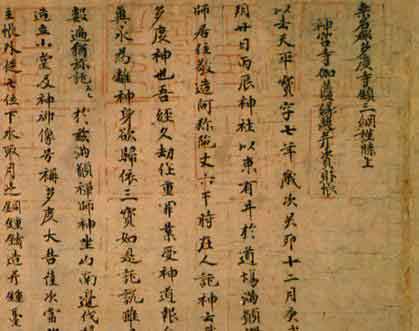 桑名郡多度寺鎮三綱謹牒上
神宮寺伽藍縁起并資財帳
以去天平寶字七年歳次癸卯十二月庚戌
朔廿日丙辰神社以東有井於道場満願禅
師居住敬造阿弥陀丈六于時在人託神云我
多度神也吾経久劫作重罪業受神道報今
冀永為離神身欲歸依三寶如是託訖雖
數遍猶弥託云々於茲満願禅師神坐山南邊伐掃
造立小堂及神御像号称多度大菩薩次當
主帳外従七位下水取月足銅鐘鋳造并鐘臺